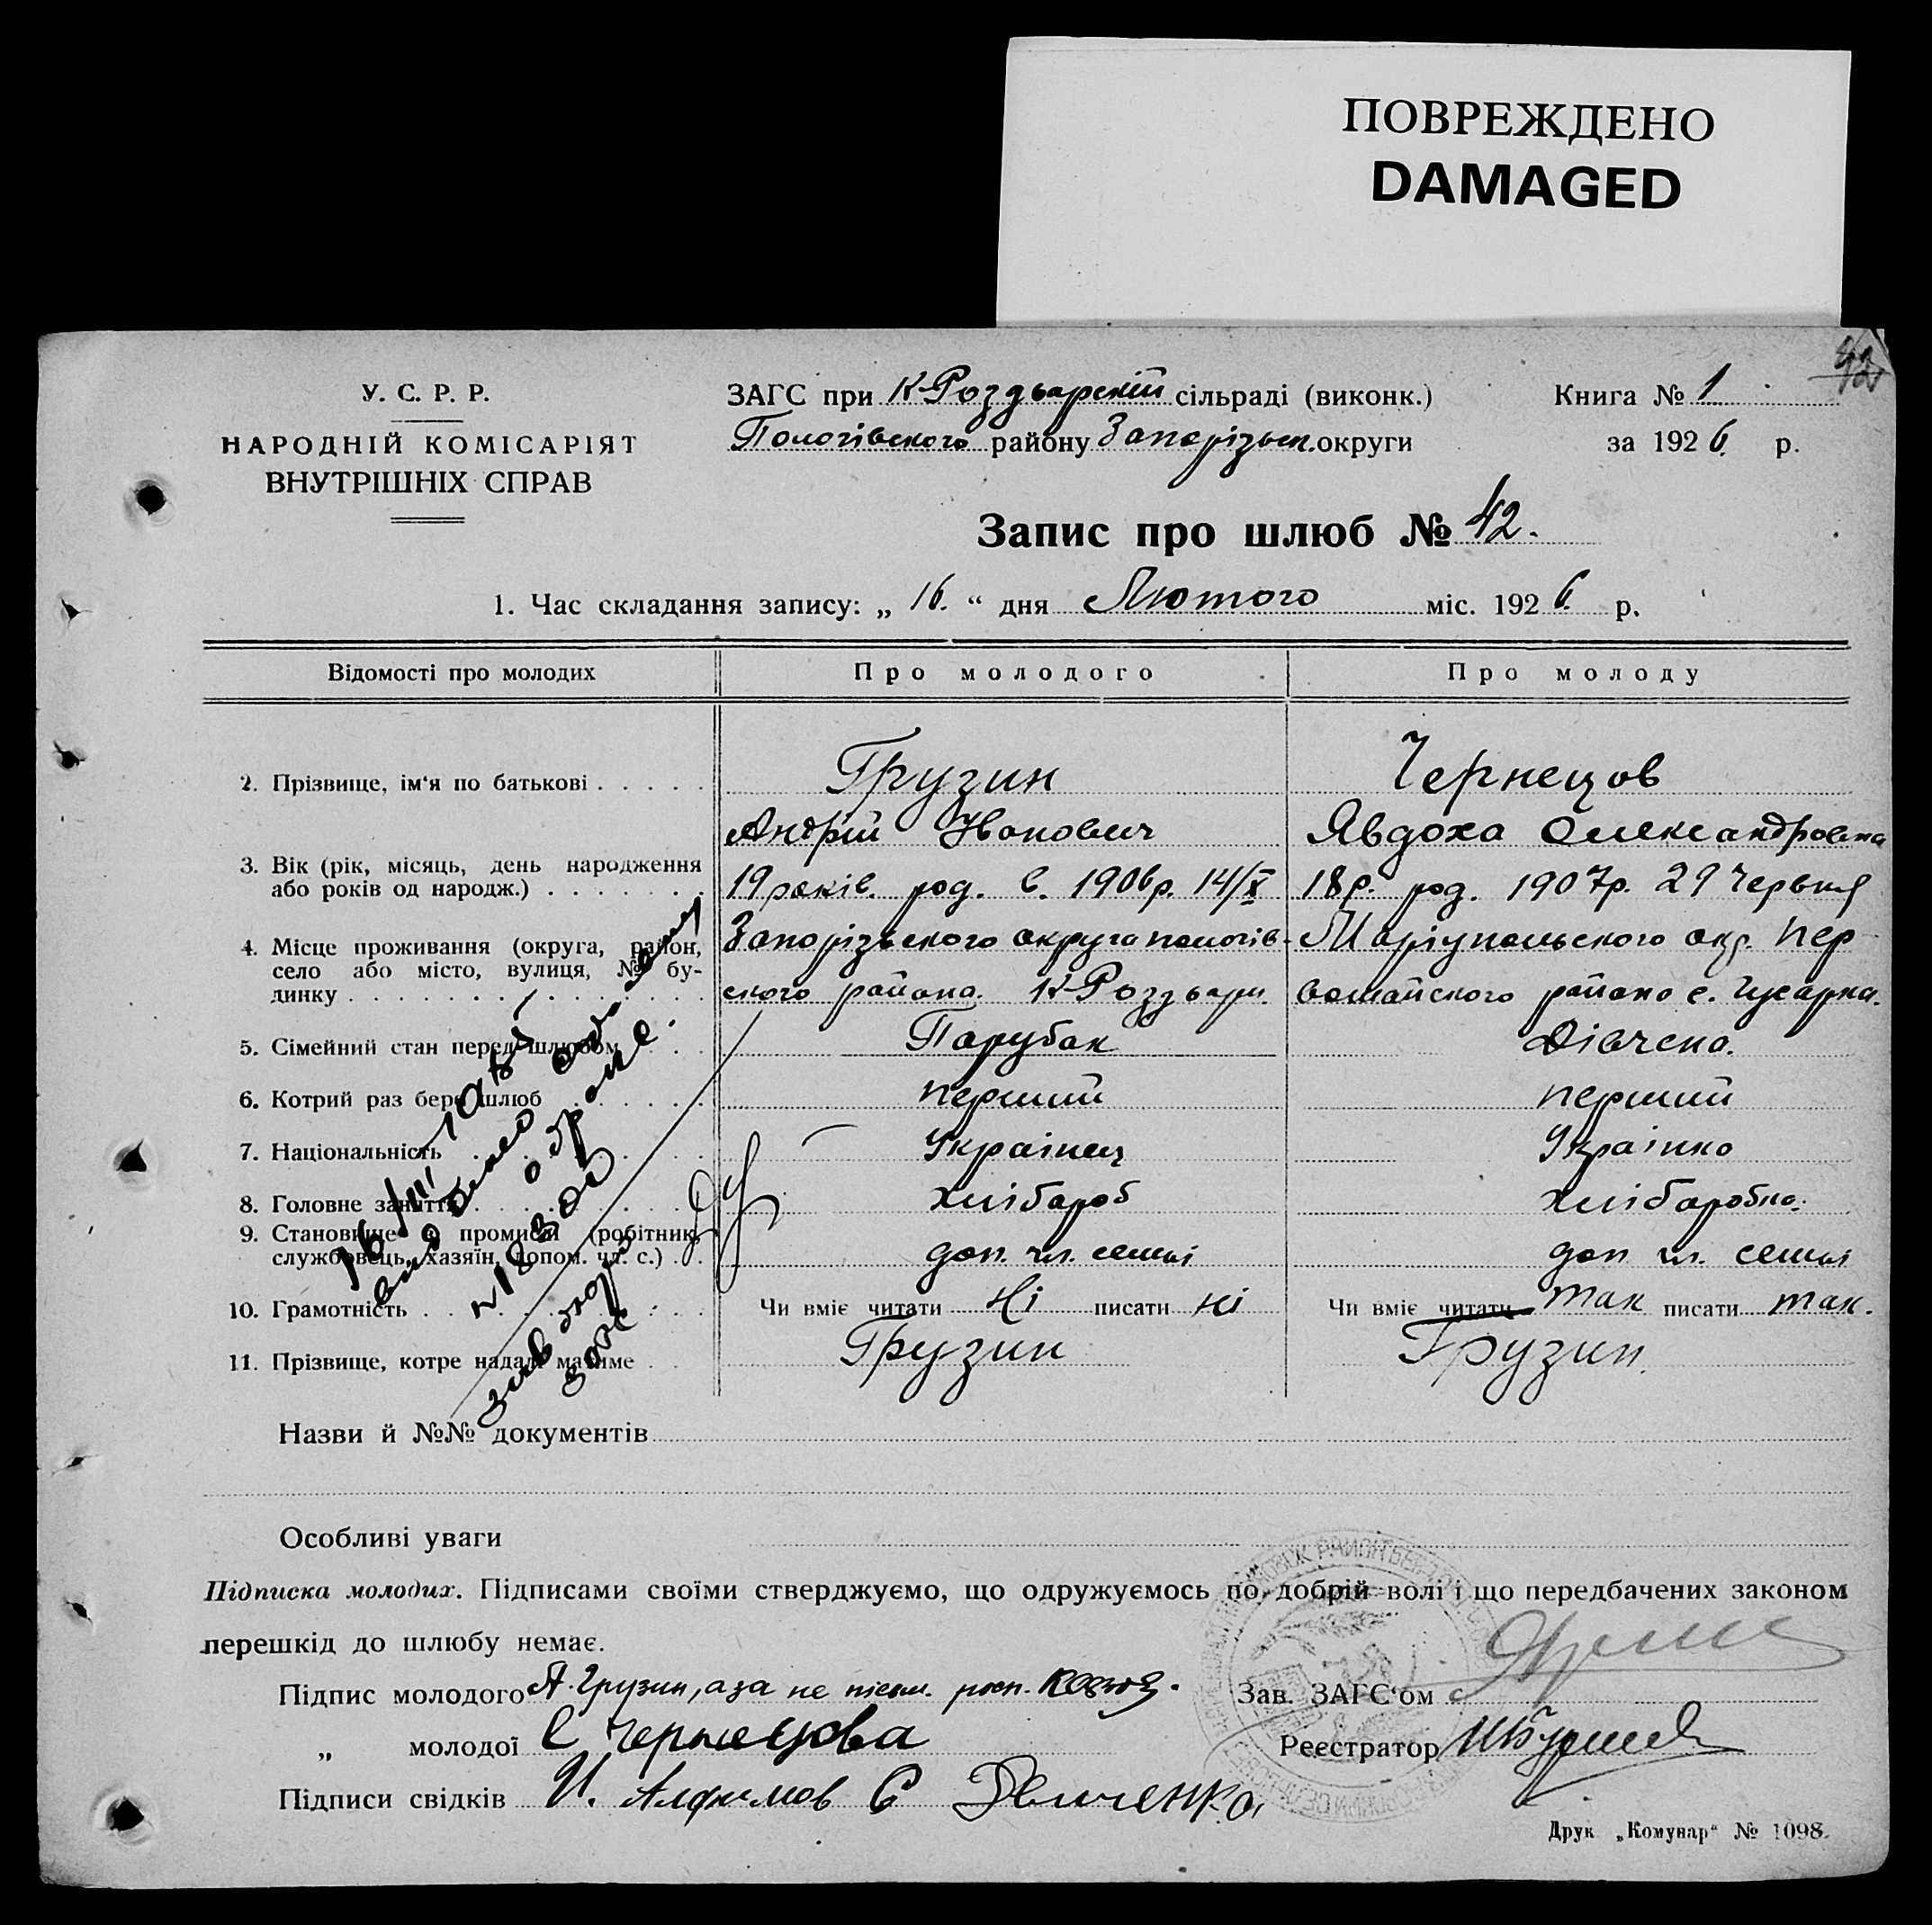 ПОВРЕЖДЕНО
DAMAGED
42
У. С. Р. Р.
НАРОДНІЙ КОМІСАРІЯТ
ВНУТРІШНІХ СПРАВ
ЗАГС при К-Роздорскій сільраді (виконк.)
Пологівского району Запорізьк. округи
Книга № 1
за 1926 р.
Запис про шлюб № 42.
1. Час складання запису: „ 16. “ дня Лютого міс. 1926 р.
Відомості про молодих Про молодого Про молоду
2. Прізвище, ім'я по батькові . . . . . Грузин Чернецов
Андрій Іванович Явдоха Олександровна
3. Вік (рік, місяць, день народження
або років од народж.) . . . . . . . 19 років. род. в. 1906 р. 14/X 18 р. род. 1907р. 29 Червня
4. Місце проживання (округа, район,
село або місто, вулиця, № бу-
динку . . . . . . . . . . . . . .
Запорізького округа пологів-
ского района. К-Роздори.
Маріупольского окр. Пер
вомайского района с. Гусарка.
5. Сімейний стан перед шлюбом . . . Парубок Дівчена.
6. Котрий раз бере шлюб . . . . . . перший перший
7. Національність . . . . . . . . Українец Українка
8. Головне заняття . . . . . . . . хлібароб хлібаробка.
9. Становище в промислі (робітник,
службовець, хазяїн, допом. чл. с.) . . доп. чл. семьї доп. чл. семьї
10. Грамотність . . . . . . . . Чи вміє читати Ні писати ні Чи вміє читати так писати так.
11. Прізвище, котре надалі матиме . . Грузин Грузин.
16/III
видано
о браке.
Назви й №№ документів
Особливі уваги
Підписка молодих. Підписами своїми стверджуємо, що одружуємось по добрій волі і що передбачених законом
перешкід до шлюбу немає.
Підпис молодого А. Грузин, а за не письм. росп.
Зав. ЗАГС'ом
„ молодої Є Чернецова
Реєстратор
Підписи свідків И. Алфимов С
Друк „Комунар“ № 1098.